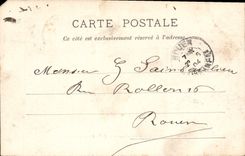 CARTE POSTALE
Ce côté est exclusivement réservé à l'adresse
Monsieur G Saint
Rue Rollon 16
Rouen